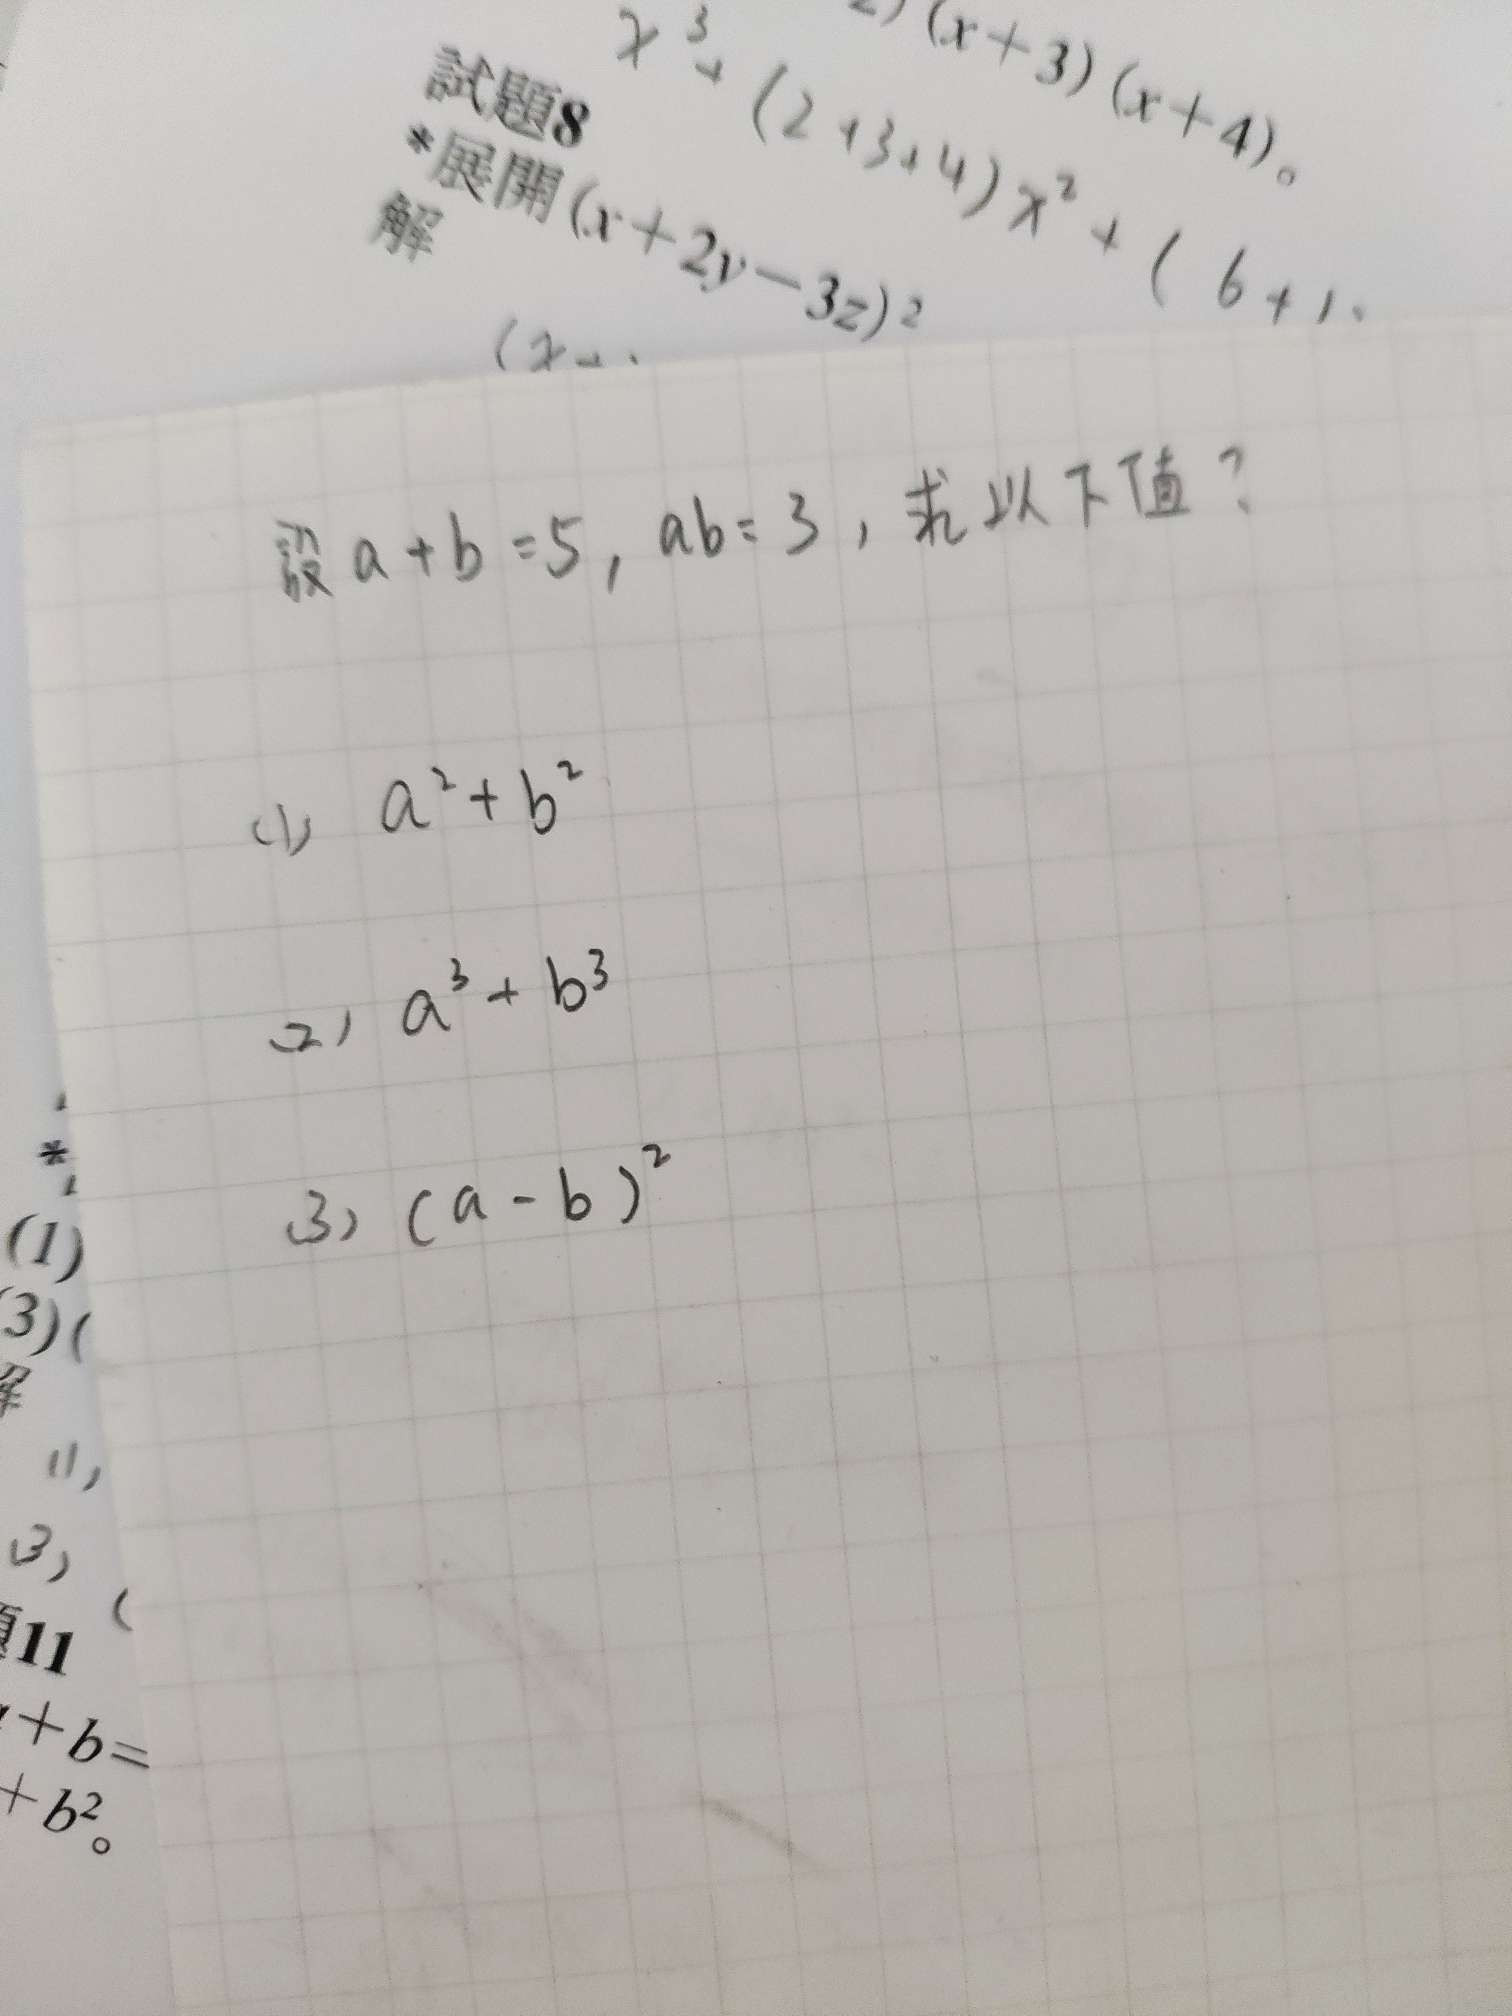 (x+3)(x+4)。
x³+(2+3+4)x²+(6+
試題8
*展開(x+2y-3z)²
解
(x+
設a+b=5, ab=3, 求以下值?
(1) a²+b²
(2) a³+b³
(3) (a-b)²
*
(1)
(3)(
解
(1)
(3) (
題11
+b=
+b²。